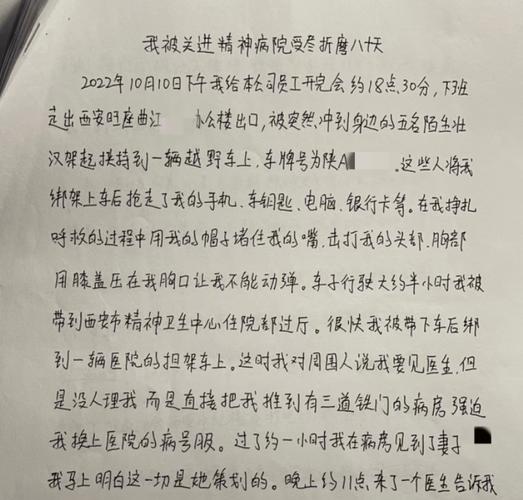 我被关进精神病院受尽折磨八十天
2022年10月10日下午我给本公司员工开完会约18点30分，下班
走出西安旺座曲江 办公楼出口，被突然冲到身边的五名陌生壮
汉架起挟持到一辆越野车上，车牌号为陕A 。这些人将我
绑架上车后抢走了我的手机、车钥匙、电脑、银行卡等。在我挣扎
呼救的过程中用我的帽子堵住我的嘴，击打我的头部、胸部
用膝盖压在我胸口让我不能动弹。车子行驶大约半小时我被
带到西安市精神卫生中心住院部过厅。很快我被带下车后绑
到一辆医院的担架车上。这时我对周围人说我要见医生，但
是没人理我而是直接把我推到有三道铁门的病房强迫
我换上医院的病号服。过了约一小时我在病房见到了妻子
我马上明白这一切是她策划的。晚上约11点，来了一个医生告诉我